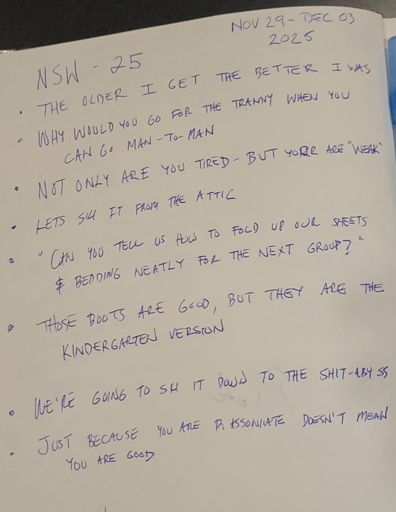 NOV 29 - DEC 03
2025
NSW - 25
• THE OLDER I GET THE BETTER I WAS
• WHY WOULD YOU GO FOR THE TRANNY WHEN YOU
CAN GO MAN-TO-MAN
• NOT ONLY ARE YOU TIRED - BUT YOUR ARE "WEAK"
• LETS SKI IT FROM THE ATTIC
• "CAN YOU TELL US HOW TO FOLD UP OUR SHEETS
& BEDDING NEATLY FOR THE NEXT GROUP?"
• THOSE BOOTS ARE GOOD, BUT THEY ARE THE
KINDERGARTEN VERSION
• WE'RE GOING TO SKI IT DOWN TO THE SHIT-ABYSS
• JUST BECAUSE YOU ARE DOESN'T MEAN
YOU ARE GOOD